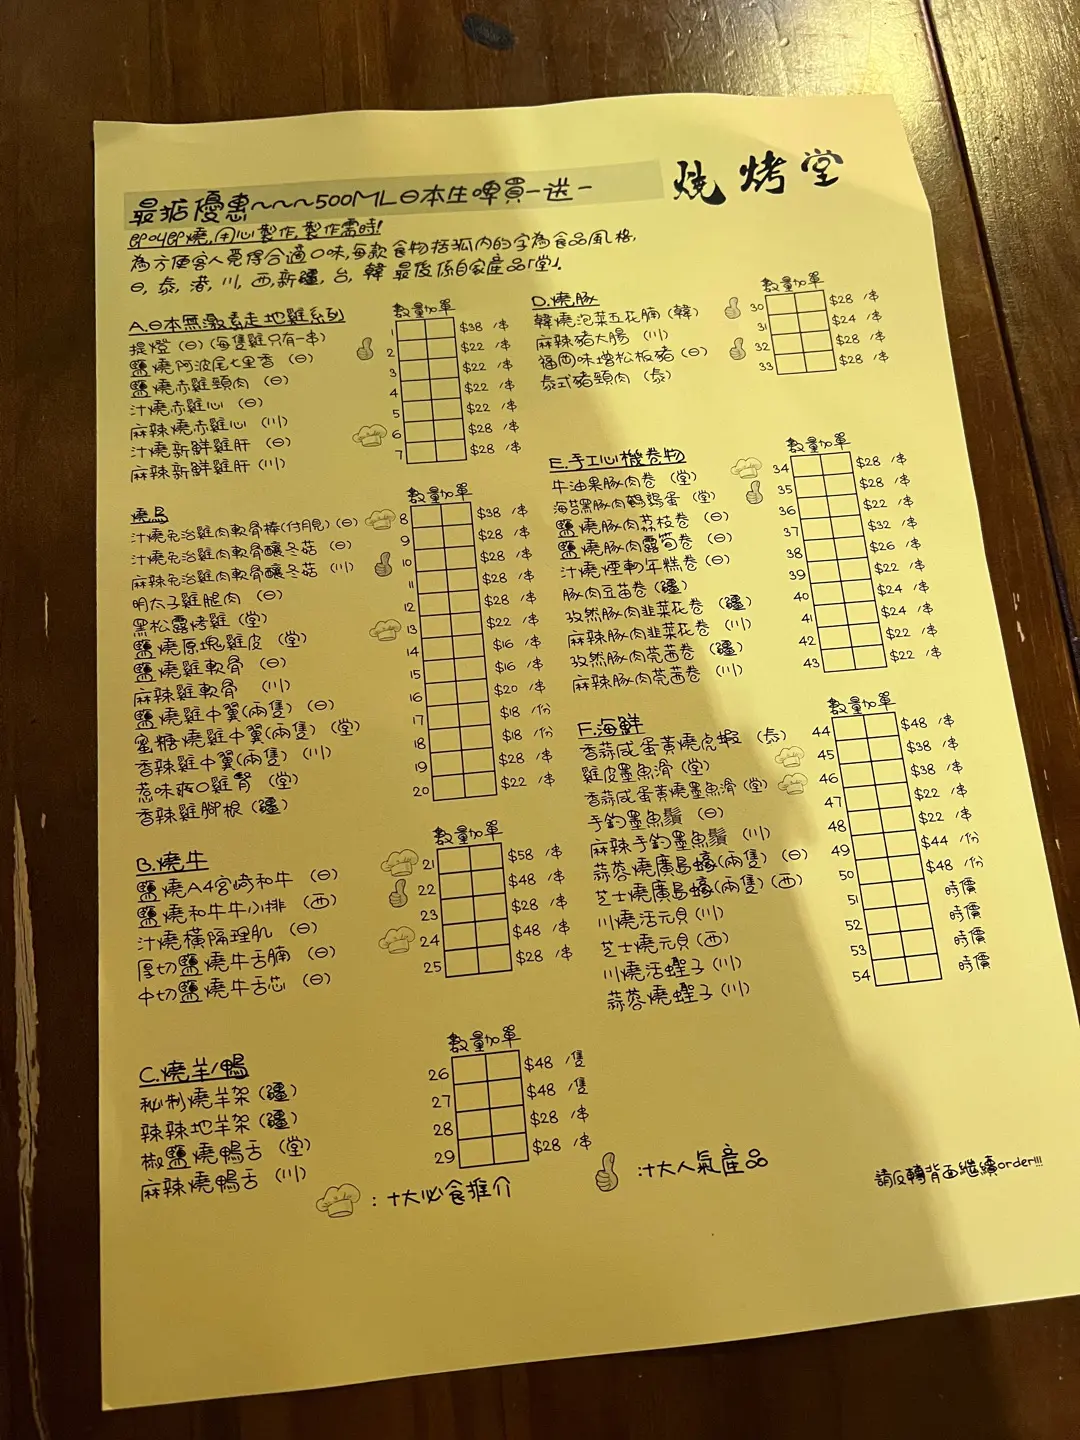 燒烤堂
最抵優惠~~~500ML日本生啤買一送一
即叫即燒,用心製作,製作需時!
為方便客人覓得合適口味,每款食物括狐內的字為食品風格,
日,泰,港,川,西,新疆,台,韓 最後係自家產品「堂」.
A.日本無激素走地雞系列 數量 加單
提燈 (日) (每隻雞只有一串) 1 $38 /串
鹽燒阿波尾七里香 (日) 2 $22 /串
鹽燒赤雞頸肉 (日) 3 $22 /串
汁燒赤雞心 (日) 4 $22 /串
麻辣燒赤雞心 (川) 5 $22 /串
汁燒新鮮雞肝 (日) 6 $28 /串
麻辣新鮮雞肝 (川) 7 $28 /串
燒鳥 數量 加單
汁燒免治雞肉軟骨棒(付月見) (日) 8 $38 /串
汁燒免治雞肉軟骨釀冬菇 (日) 9 $28 /串
麻辣免治雞肉軟骨釀冬菇 (川) 10 $28 /串
明太子雞腿肉 (日) 11 $28 /串
黑松露烤雞 (堂) 12 $28 /串
鹽燒原塊雞皮 (堂) 13 $22 /串
鹽燒雞軟骨 (日) 14 $16 /串
麻辣雞軟骨 (川) 15 $16 /串
鹽燒雞中翼(兩隻) (日) 16 $20 /串
蜜糖燒雞中翼(兩隻) (堂) 17 $18 /份
香辣雞中翼(兩隻) (川) 18 $18 /份
惹味爽口雞腎 (堂) 19 $28 /串
香辣雞腳根 (疆) 20 $22 /串
B.燒牛 數量 加單
鹽燒A4宮崎和牛 (日) 21 $58 /串
鹽燒和牛牛小排 (西) 22 $48 /串
汁燒橫隔理肌 (日) 23 $28 /串
厚切鹽燒牛舌腩 (日) 24 $48 /串
中切鹽燒牛舌芯 (日) 25 $28 /串
C.燒羊/鴨 數量 加單
秘制燒羊架 (疆) 26 $48 /隻
辣辣地羊架 (疆) 27 $48 /隻
椒鹽燒鴨舌 (堂) 28 $28 /串
麻辣燒鴨舌 (川) 29 $28 /串
D.燒豚 數量 加單
韓燒泡菜五花腩 (韓) 30 $28 /串
麻辣豬大腸 (川) 31 $24 /串
福岡味增松板豬 (日) 32 $28 /串
泰式豬頸肉 (泰) 33 $28 /串
E.手工心機卷物 數量 加單
牛油果豚肉卷 (堂) 34 $28 /串
海苔黑豚肉鵪鶉蛋 (堂) 35 $28 /串
鹽燒豚肉荔枝卷 (日) 36 $22 /串
鹽燒豚肉露筍卷 (日) 37 $32 /串
汁燒煙靭年糕卷 (日) 38 $26 /串
豚肉豆苗卷 (疆) 39 $22 /串
孜然豚肉韭菜花卷 (疆) 40 $24 /串
麻辣豚肉韭菜花卷 (川) 41 $24 /串
孜然豚肉莞茜卷 (疆) 42 $22 /串
麻辣豚肉莞茜卷 (川) 43 $22 /串
F.海鮮 數量 加單
香蒜咸蛋黃燒虎蝦 (泰) 44 $48 /串
雞皮墨魚滑 (堂) 45 $38 /串
香蒜咸蛋黃燒墨魚滑 (堂) 46 $38 /串
手釣墨魚鬚 (日) 47 $22 /串
麻辣手釣墨魚鬚 (川) 48 $22 /串
蒜蓉燒廣島蠔(兩隻) (日) 49 $44 /份
芝士燒廣島蠔(兩隻) (西) 50 $48 /份
川燒活元貝 (川) 51 時價
芝士燒元貝 (西) 52 時價
川燒活蟶子 (川) 53 時價
蒜蓉燒蟶子 (川) 54 時價
:十大必食推介
:十大人氣產品
請反轉背面繼續order!!!